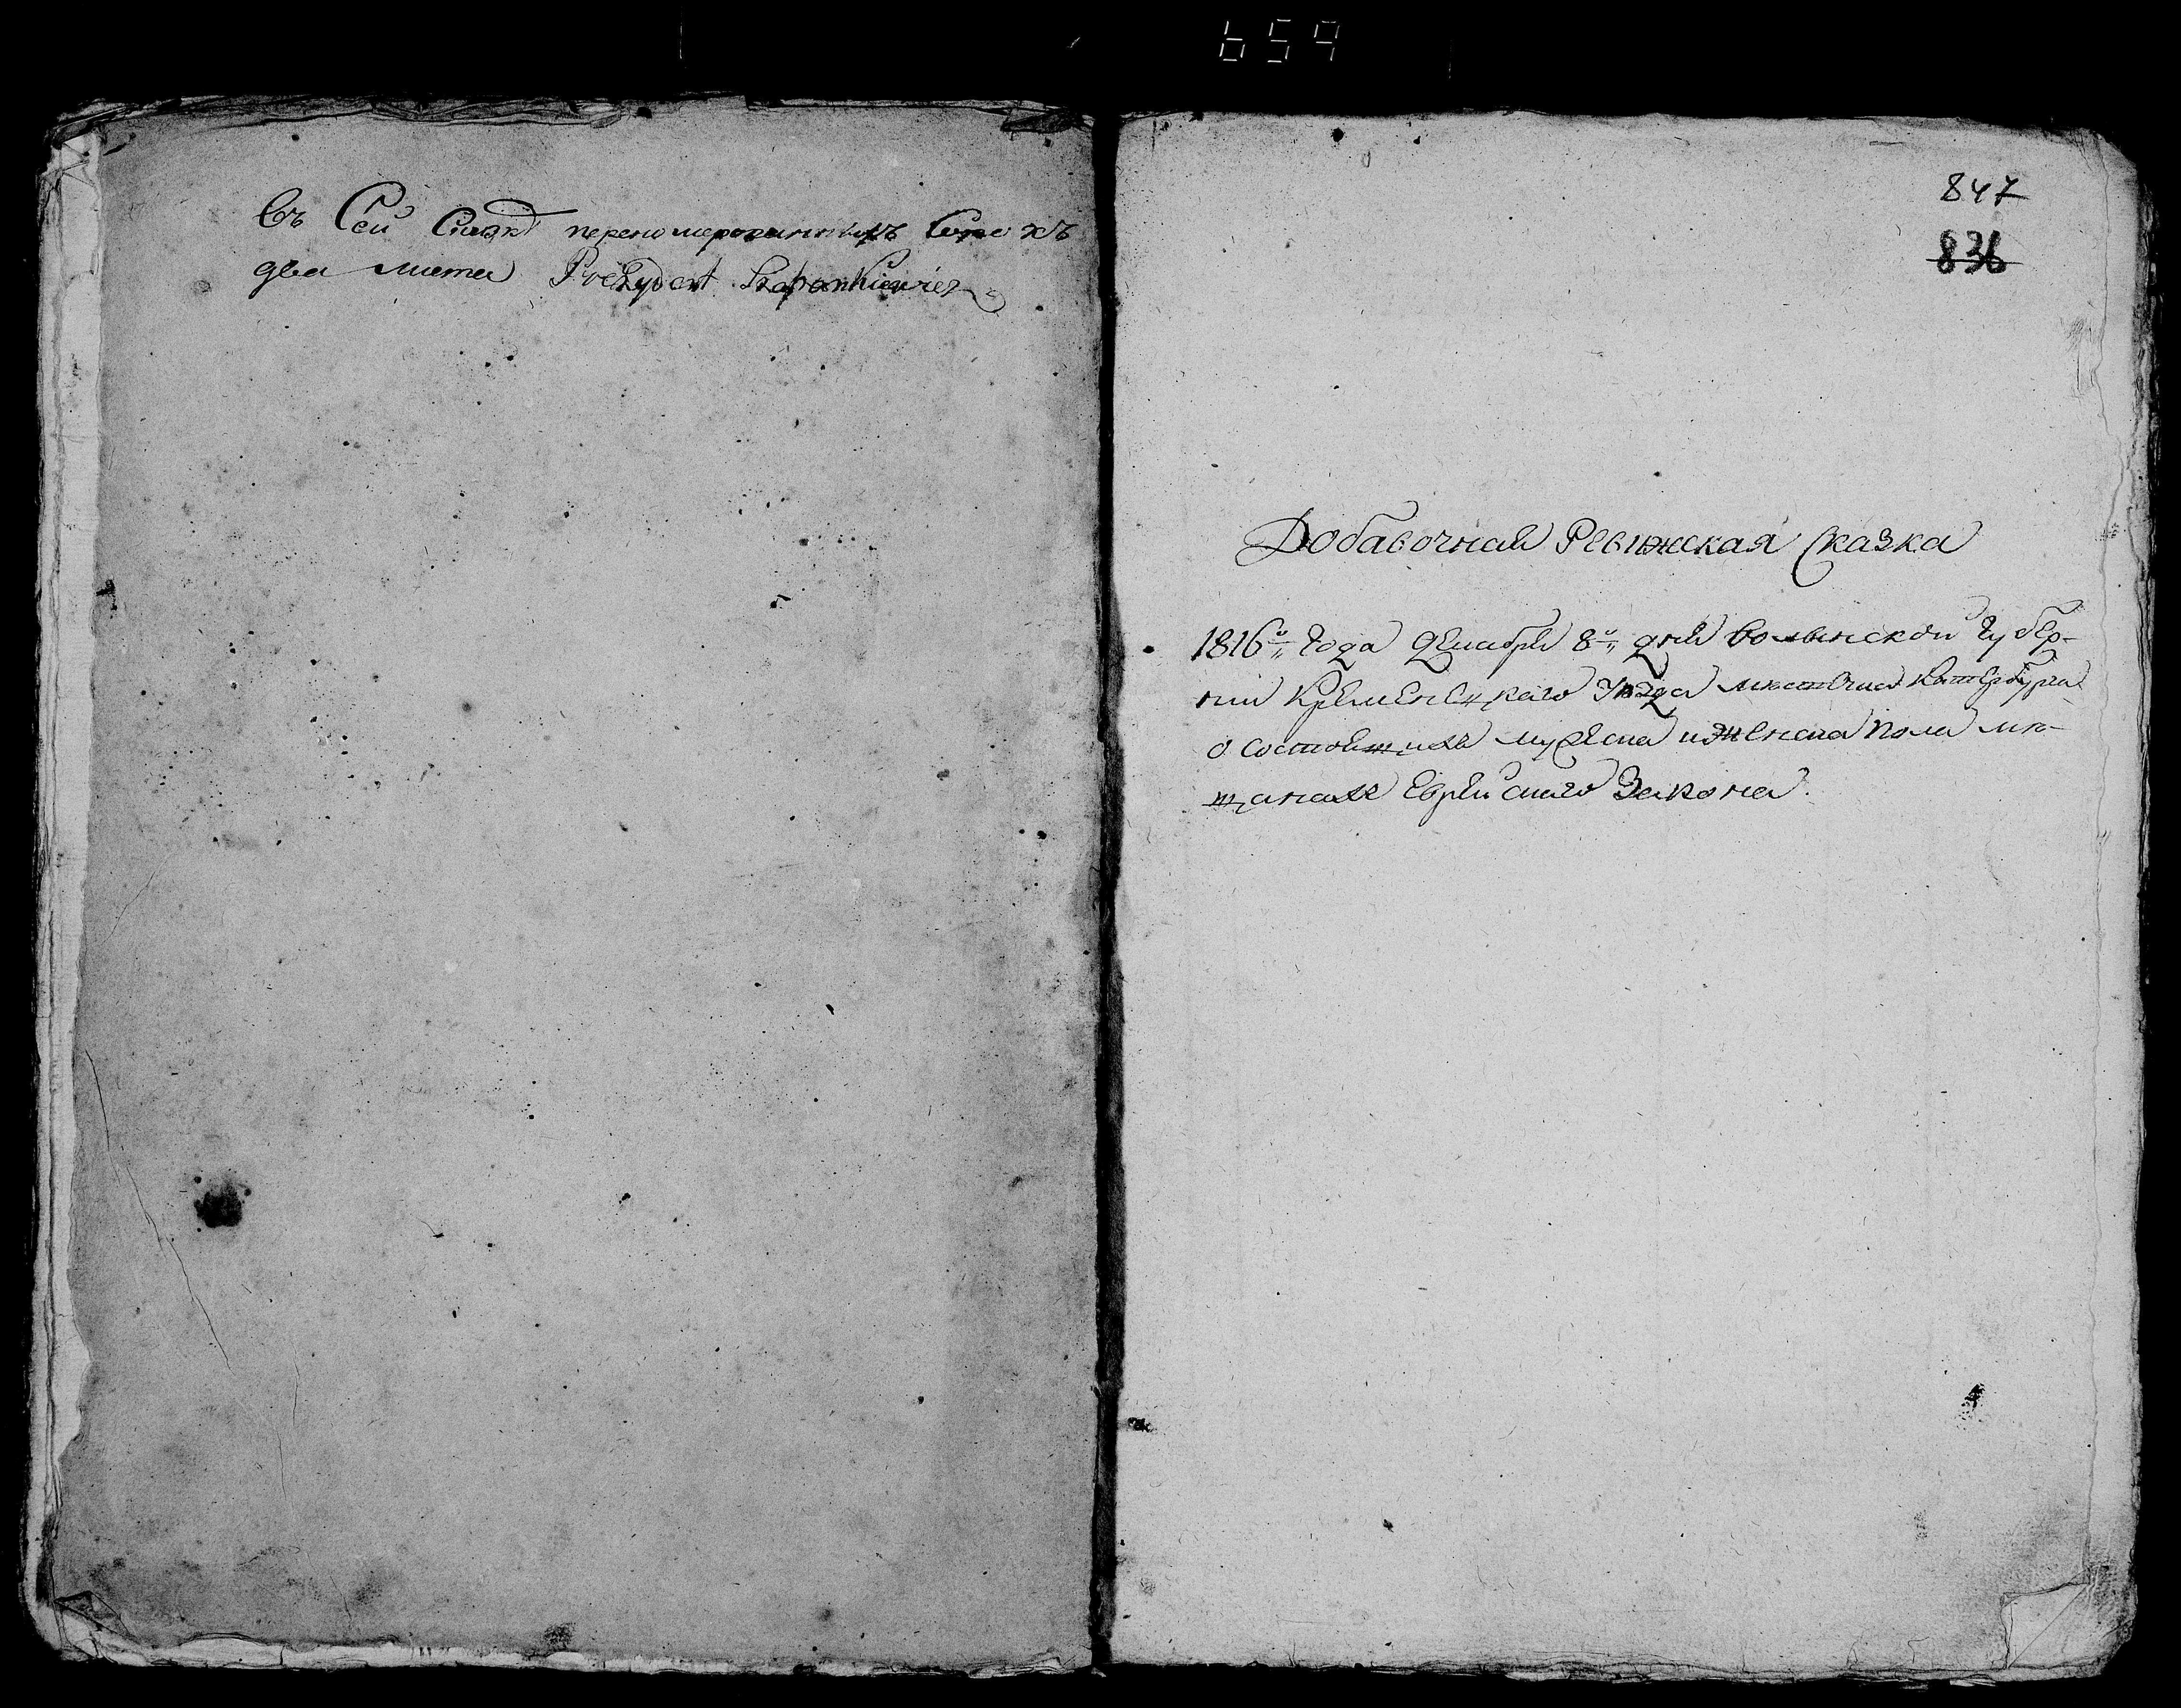 659
Въ Сей Сказкѣ перенумерованныхъ Сорокъ
два листа Prezydent
847
836
Добавочная Ревижская Сказка
1816го Года Декабря 8го дня Волынской Губер-
нии Кременецкаго Уѣзда мѣстечка Катербурга
о Состоящихъ мужеска и женска пола мѣ-
щанахъ Еврейскаго Закона.